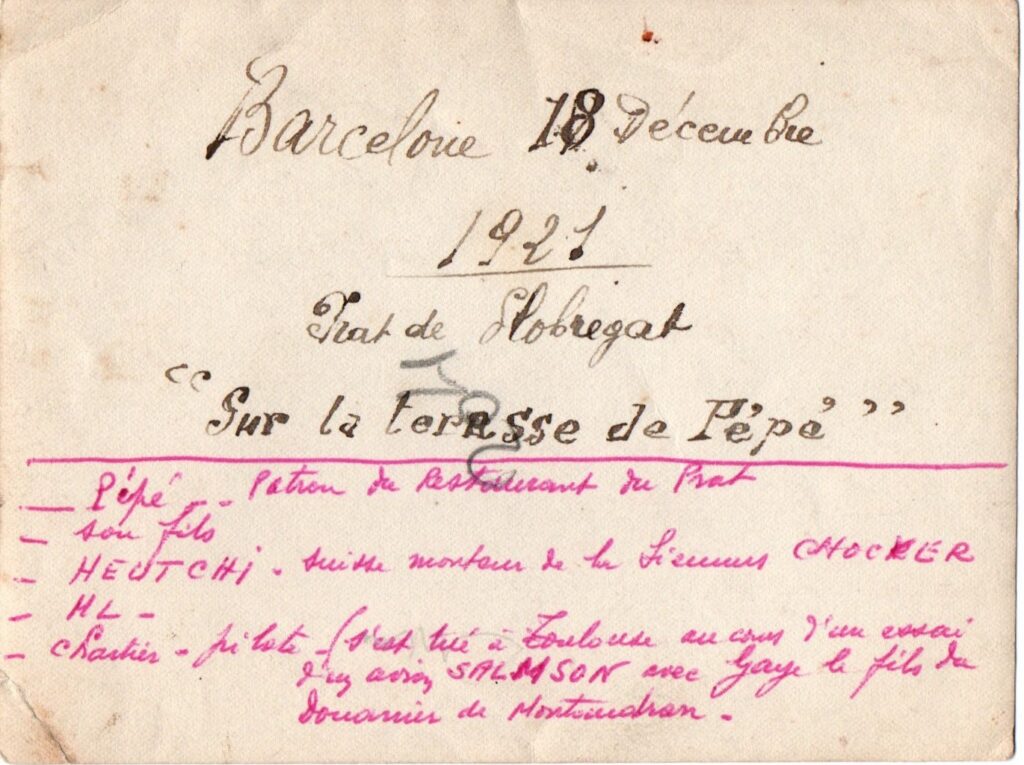 Barcelone 18 Décembre
1921
Prat de Llobregat
“Sur la terasse de Pépé”
— Pépé -- Patron du Restaurant du Prat
— son fils
— HEUTCHI - suisse monteur de la Siemens CHOCKER
— HL -
— Chartier - pilote - (s'est tué à Toulouse au cours d'un essai
d'un avion SALMSON avec Gaye le fils du
Douanier de Montaudran -